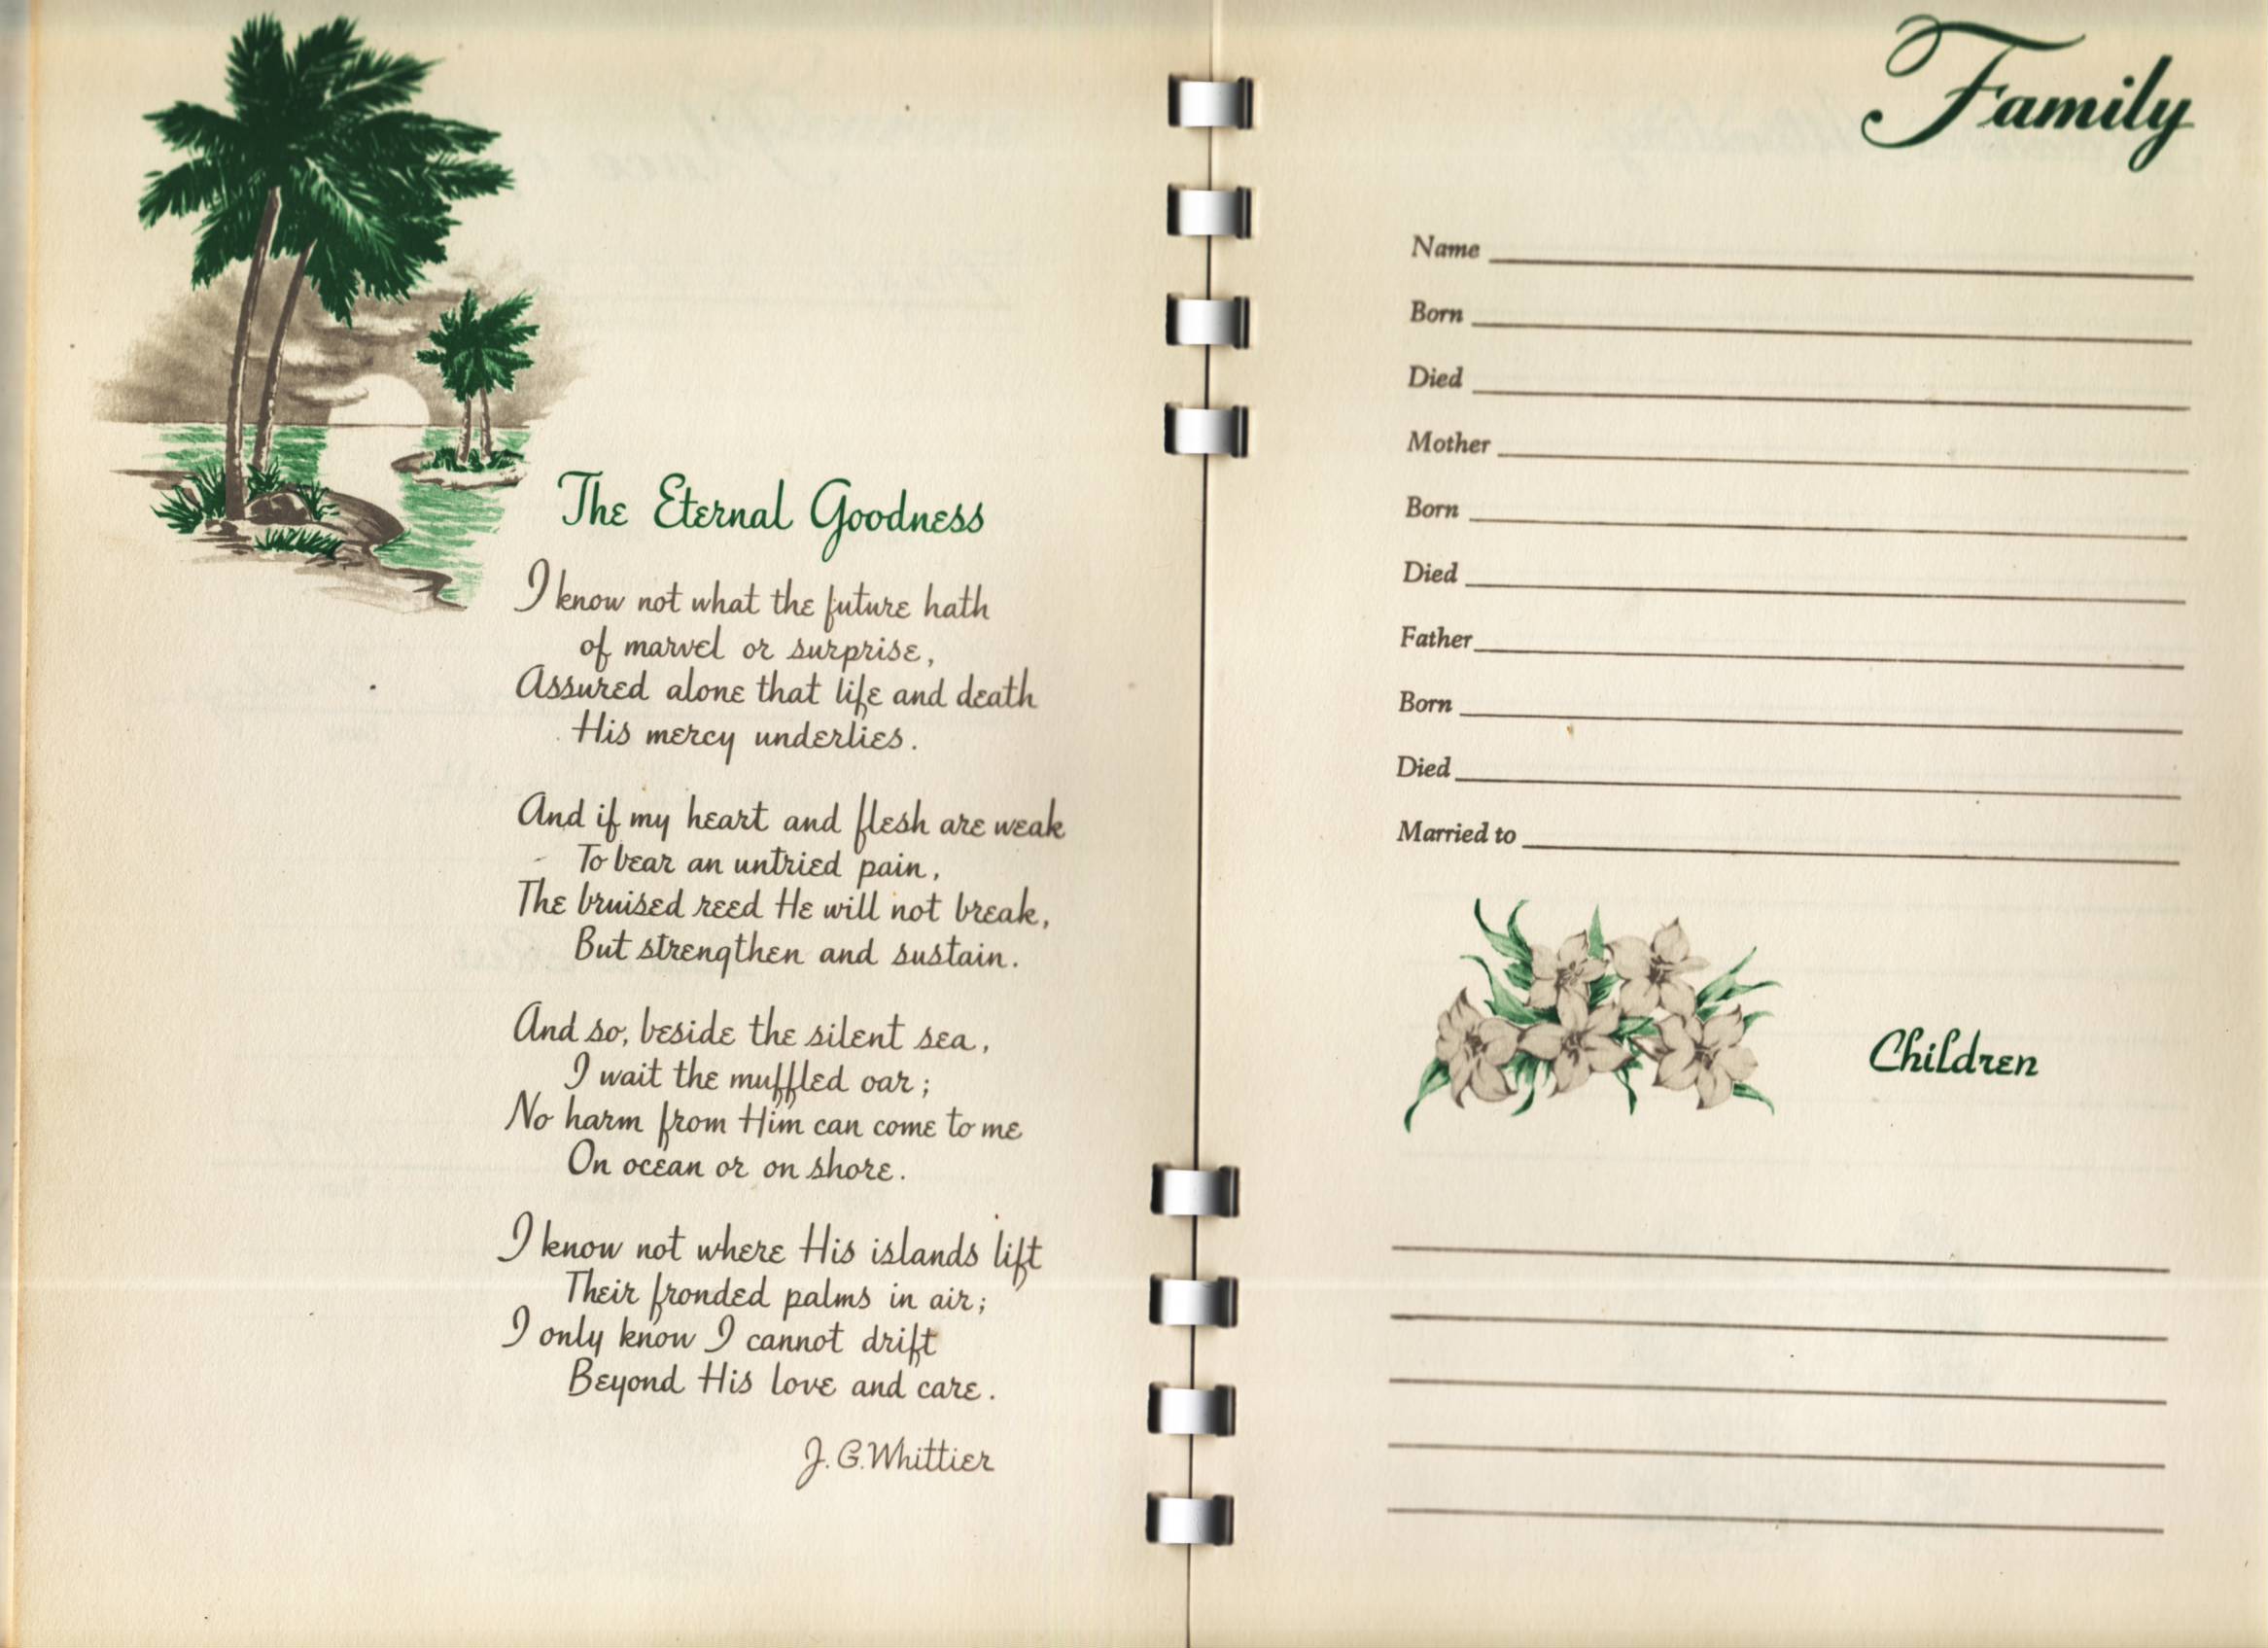 The Eternal Goodness
I know not what the future hath
of marvel or surprise,
Assured alone that life and death
His mercy underlies.
And if my heart and flesh are weak
To bear an untried pain,
The bruised reed He will not break,
But strengthen and sustain.
And so, beside the silent sea,
I wait the muffled oar;
No harm from Him can come to me
On ocean or on shore.
I know not where His islands lift
Their fronded palms in air;
I only know I cannot drift
Beyond His love and care.
J. G. Whittier
Family
Name
Born
Died
Mother
Born
Died
Father
Born
Died
Married to
Children